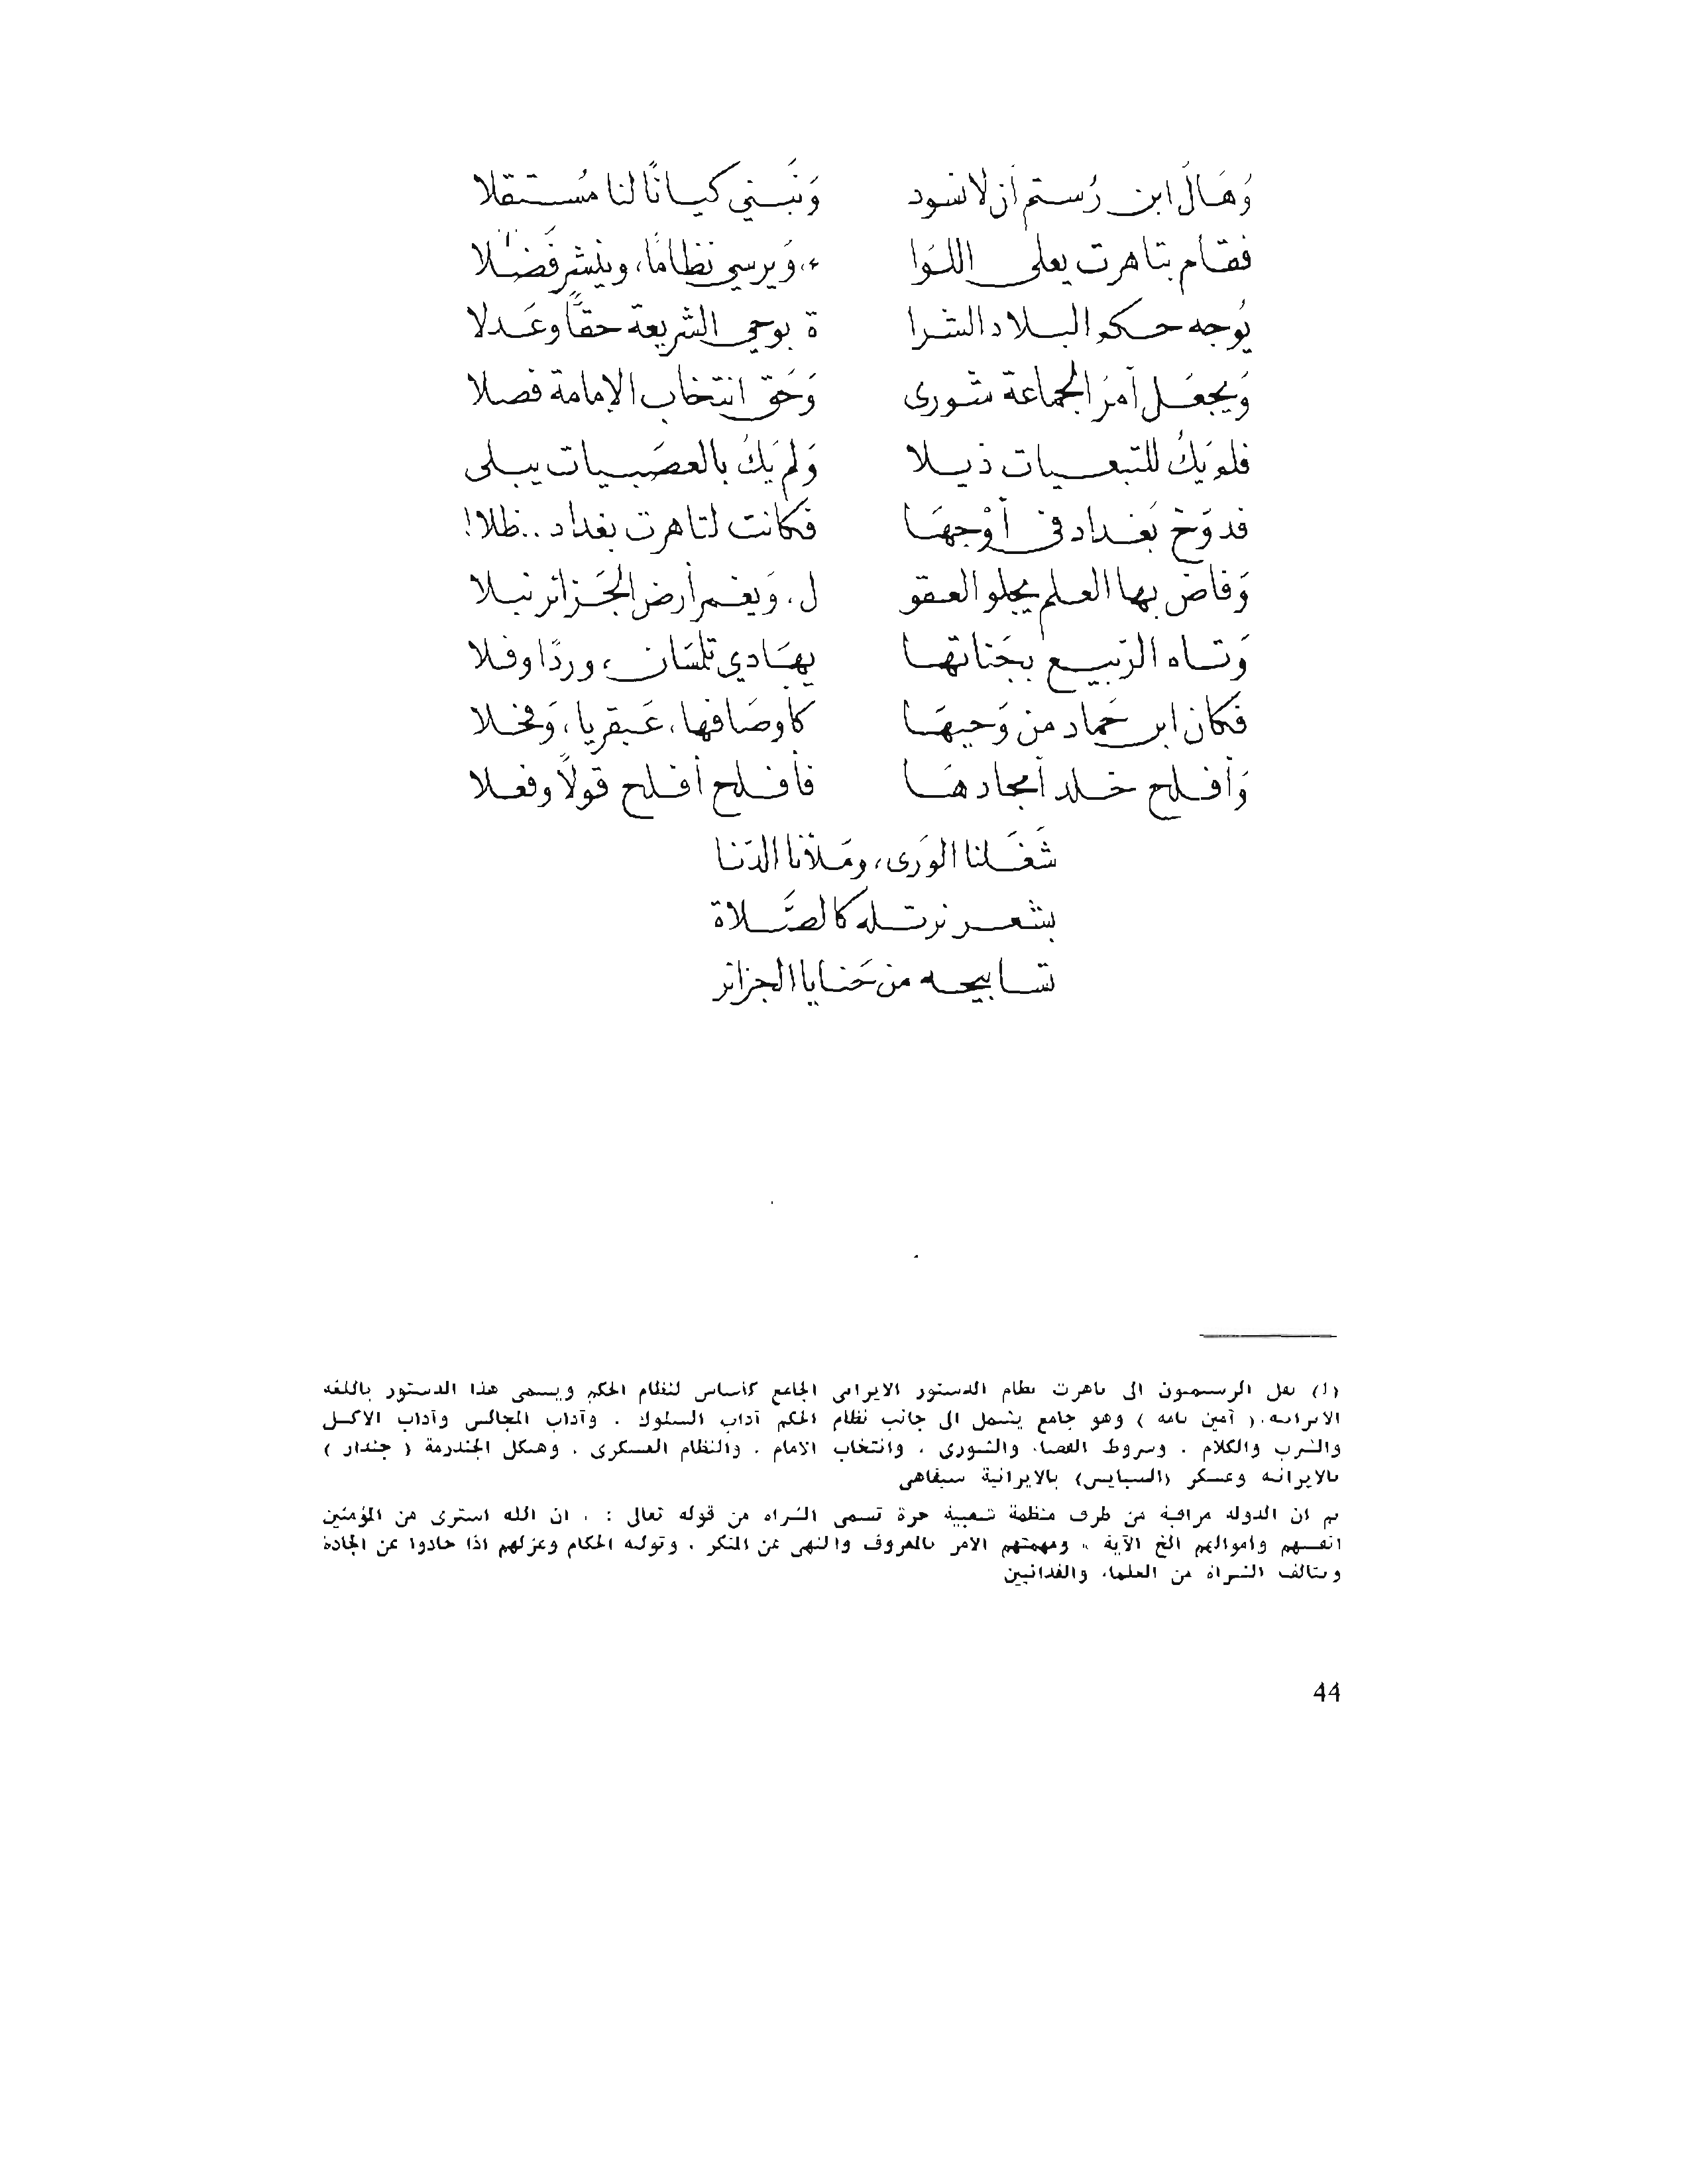 وَهَالَ ابن رُستم أن لا نسود وَنَبني كيانًا لنا مُستقلا
فقام بتاهرت يعلى اللوَا ء، وَيرسي نظامًا، وينشر فَضلا
يُوجه حكم البلاد الشرا ة بوحي الشريعة حقًّا وعَدلا
وَيجعَل أمرَ الجماعة شورى وَحَق انتخاب الإمامة فصلا
فلم يَكُ للتبعيات ذيلا وَلم يَكُ بالعصَبيات يبلى
فدوَخ بَغداد في أوْجهَا فكانت لتاهرت بغداد.. ظلا!
وَفاض بها العلم يجلو العقو ل، وَيغمر أرض الجَزائر نبلا
وَتاه الرَبيع بجَناتها يهَادي تلمسَان، وردًا وفلا
فكان ابن حَماد من وَحيهَا كأوصَافها، عَبقريا، وَفحلا
وَأفلح خلد أمجادهَا فأفلح أفلح قولاً وفعلا
شَغَلنا الوَرى، ومَلأنا الدّنا
بشعر نرتله كالصَّلاة
تسابيحه من حَنايا الجزائر
(1) نقل الرستميون الى تاهرت نظام الدستور الايرانى الجامع كأساس لنظام الحكم ويسمى هذا الدستور باللغة
الايرانية. ( آمين نامه ) وهو جامع يشمل الى جانب نظام الحكم آداب السلوك . وآداب المجالس وآداب الاكل
والشرب والكلام . وشروط القضاء والشورى . وانتخاب الامام . والنظام العسكرى . وهيكل الجندرمة ( جندار )
بالايرانية وعسكر (السبايس) بالايرانية سبفاهى
ثم ان الدولة مراقبة من طرف منظمة شعبية حرة تسمى الشراه من قوله تعالى : . ان الله اشترى من المؤمنين
انفسهم واموالهم الخ الآية » ومهمتهم الامر بالمعروف والنهى عن المنكر . وتولية الحكام وعزلهم اذا حادوا عن الجادة
وتتالف الشراة من العلماء والفدائيين
44